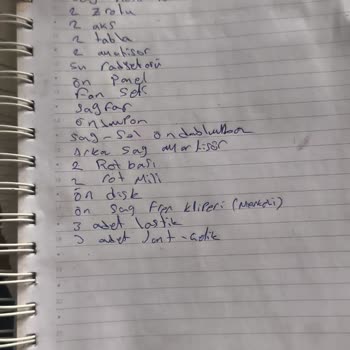 2 aks
2 tabla
2 amortisör
su radyatörü
ön Panel
Fan Seti
Sag far
ön tampon
Sag-Sol ön
Arka Sag amortisör
2 Rot başı
2 rot Mili
ön disk
ön Sag Fren kliperi (Merkezi)
3 adet lastik
3 adet Jant-çelik